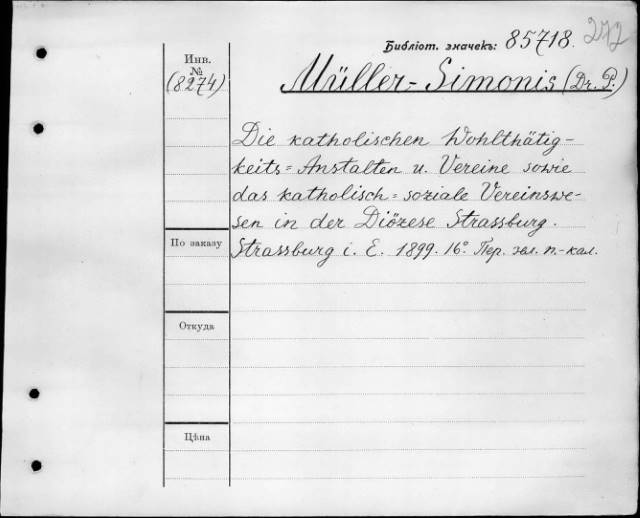 Библіот. значекъ: 85718. 272
Инв.
№
(8274)
Müller-Simonis (Dr. P.)
Die katholischen Wohlthätig-
keits=Anstalten u. Vereine sowie
das katholisch=soziale Vereinswe-
sen in der Diözese Strassburg.
Strassburg i. E. 1899. 16° Пер. зел. п.-кал.
По заказу
Откуда
Цѣна